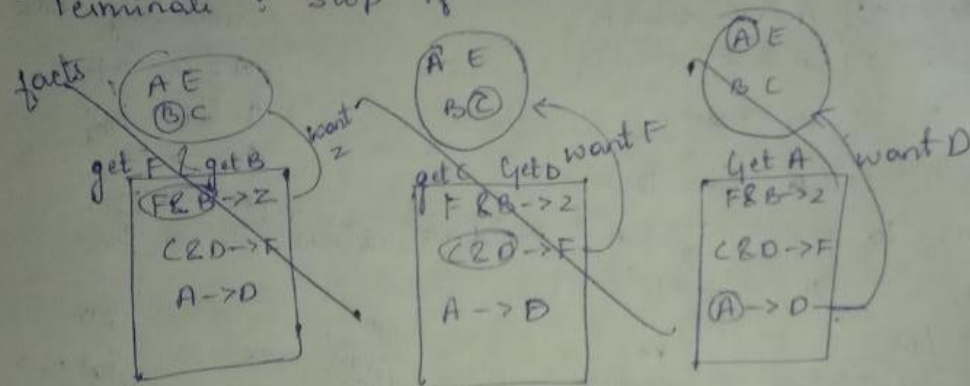 Terminate : Stop if
facts
A E
B C
want
Z
get F & get B
F & B -> Z
C & D -> F
A -> D
A E
B C
want F
get C Get D
F & B -> Z
C & D -> F
A -> D
A E
B C
want D
Get A
F & B -> Z
C & D -> F
A -> D